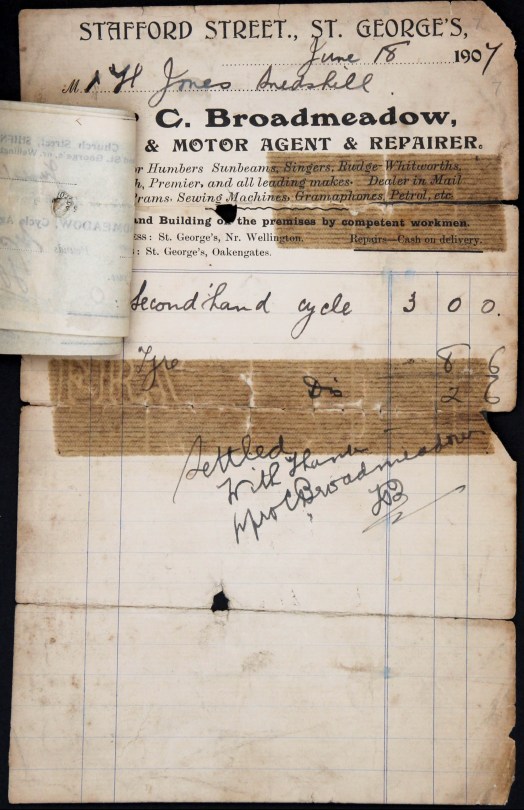 STAFFORD STREET., ST. GEORGE'S,
June 18 1907
M H Jones Snedshill
C. Broadmeadow,
& MOTOR AGENT & REPAIRER.
or Humbers Sunbeams, Singers, Rudge-Whitworths,
h, Premier, and all leading makes. Dealer in Mail
rams, Sewing Machines, Gramaphones, Petrol, etc
and Building on the premises by competent workmen.
ess: St. George's, Nr. Wellington. Repairs—Cash on delivery.
: St. George's, Oakengates.
Second hand cycle 3 0 0.
Tyre - 8 6
Dis 2 6
Settled
With Thanks
pro C Broadmeadow